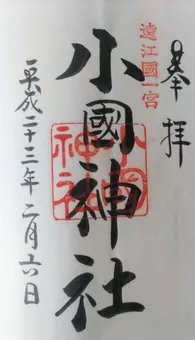 奉拝
遠江國一宮
小國神社
小國神社
平成二十三年二月六日